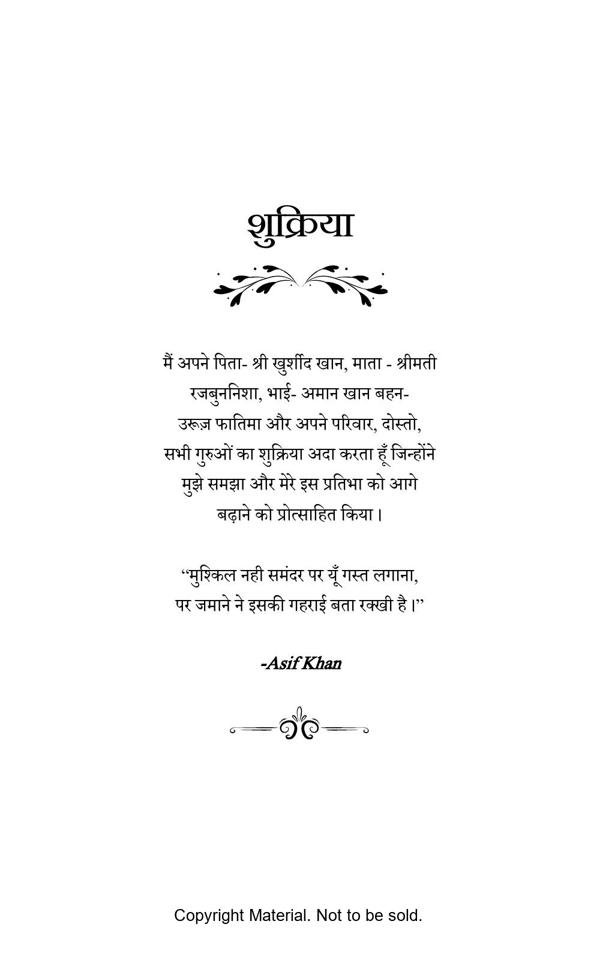 शुक्रिया
मैं अपने पिता- श्री खुर्शीद खान, माता - श्रीमती
रजबुननिशा, भाई- अमान खान बहन-
उरूज़ फातिमा और अपने परिवार, दोस्तो,
सभी गुरुओं का शुक्रिया अदा करता हूँ जिन्होंने
मुझे समझा और मेरे इस प्रतिभा को आगे
बढ़ाने को प्रोत्साहित किया।
“मुश्किल नही समंदर पर यूँ गस्त लगाना,
पर जमाने ने इसकी गहराई बता रक्खी है।”
-Asif Khan
Copyright Material. Not to be sold.